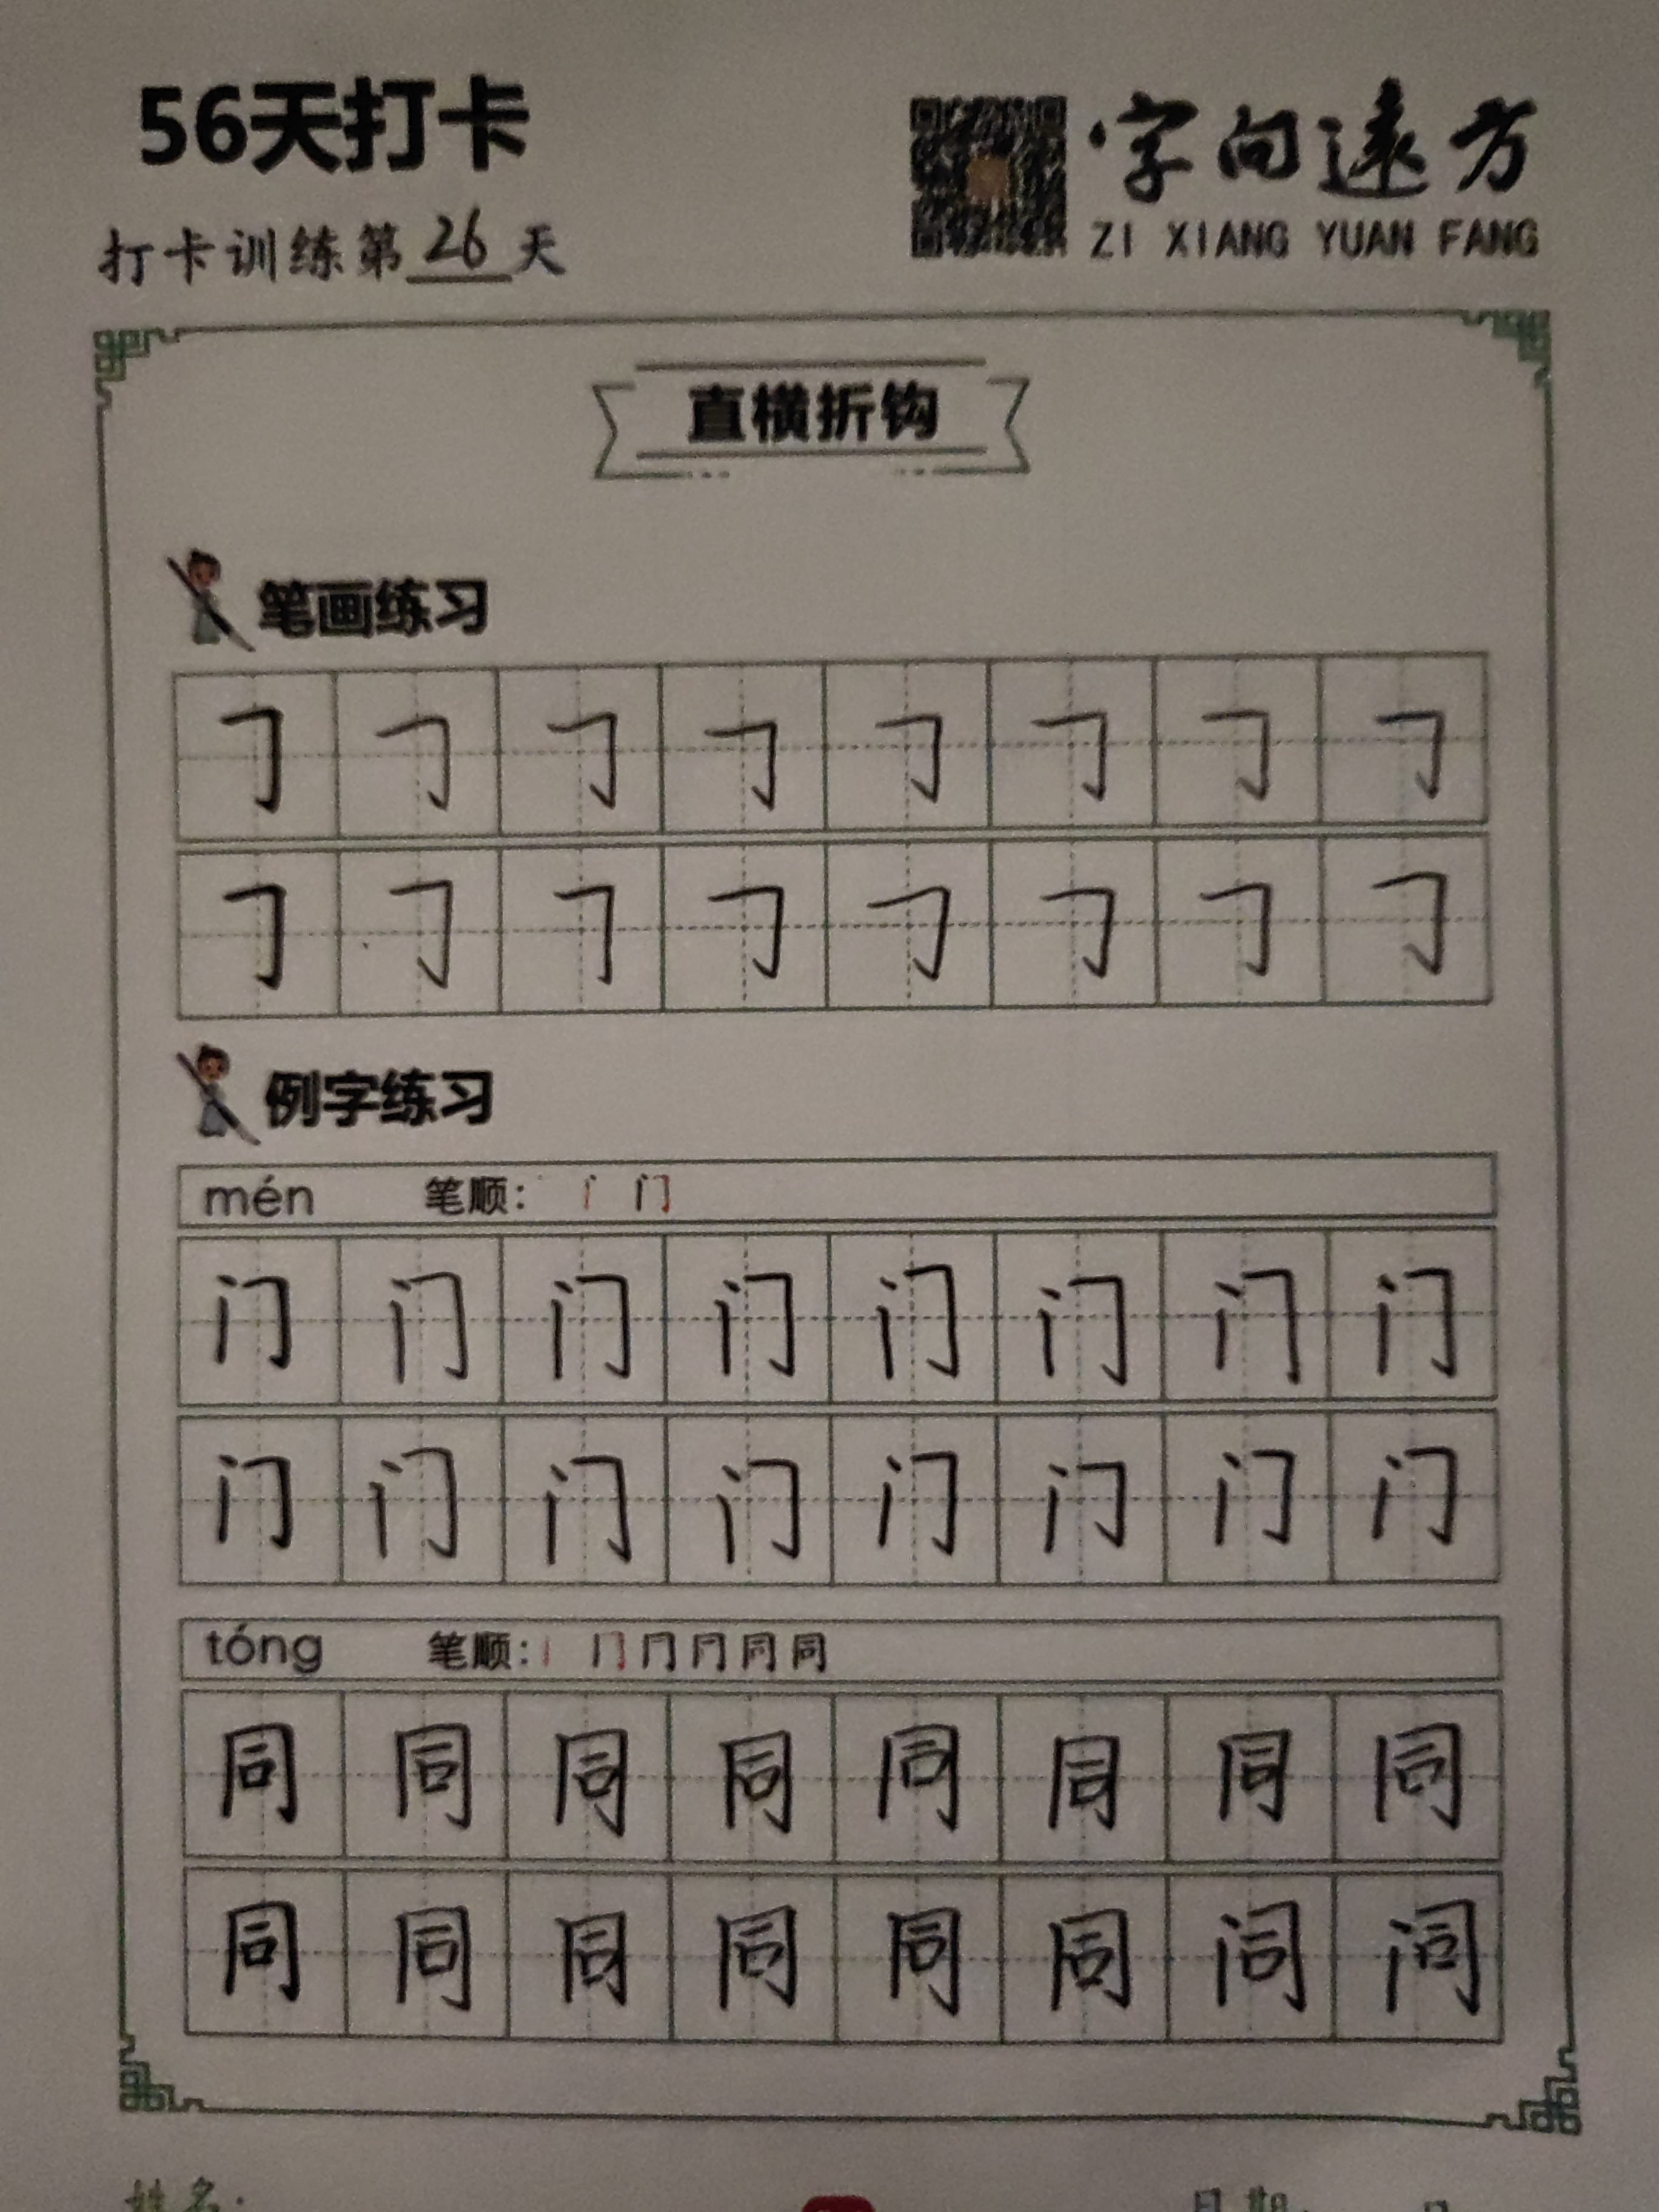 56天打卡
字向遠方
ZI XIANG YUAN FANG
打卡训练第26天
直横折钩
笔画练习
𠃌 𠃌 𠃌 𠃌 𠃌 𠃌 𠃌 𠃌
𠃌 𠃌 𠃌 𠃌 𠃌 𠃌 𠃌 𠃌
例字练习
mén 笔顺: 丶 门
门 门 门 门 门 门 门 门
门 门 门 门 门 门 门 门
tóng 笔顺: 丨 冂 同 同
同 同 同 同 同 同 同 同
同 同 同 同 同 同 问 问
姓名:
日期: